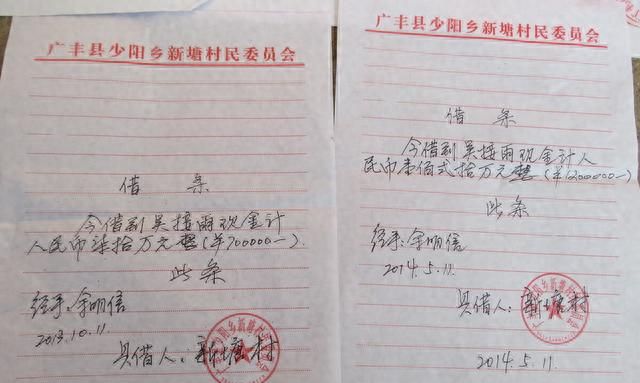 广丰县少阳乡新塘村民委员会
借 条
今借到吴接雨现金计
人民币柒拾万元整(¥700000—).
此条
经手:余明信
2013.10.11.
具借人:新塘村
广丰县少阳乡新塘村民委员会
借 条
今借到吴接雨现金计人
民币壹佰弍拾万元整(¥1200000—)
此条
经手:余明信
2014.5.11.
具借人:新塘村
2014.5.11.